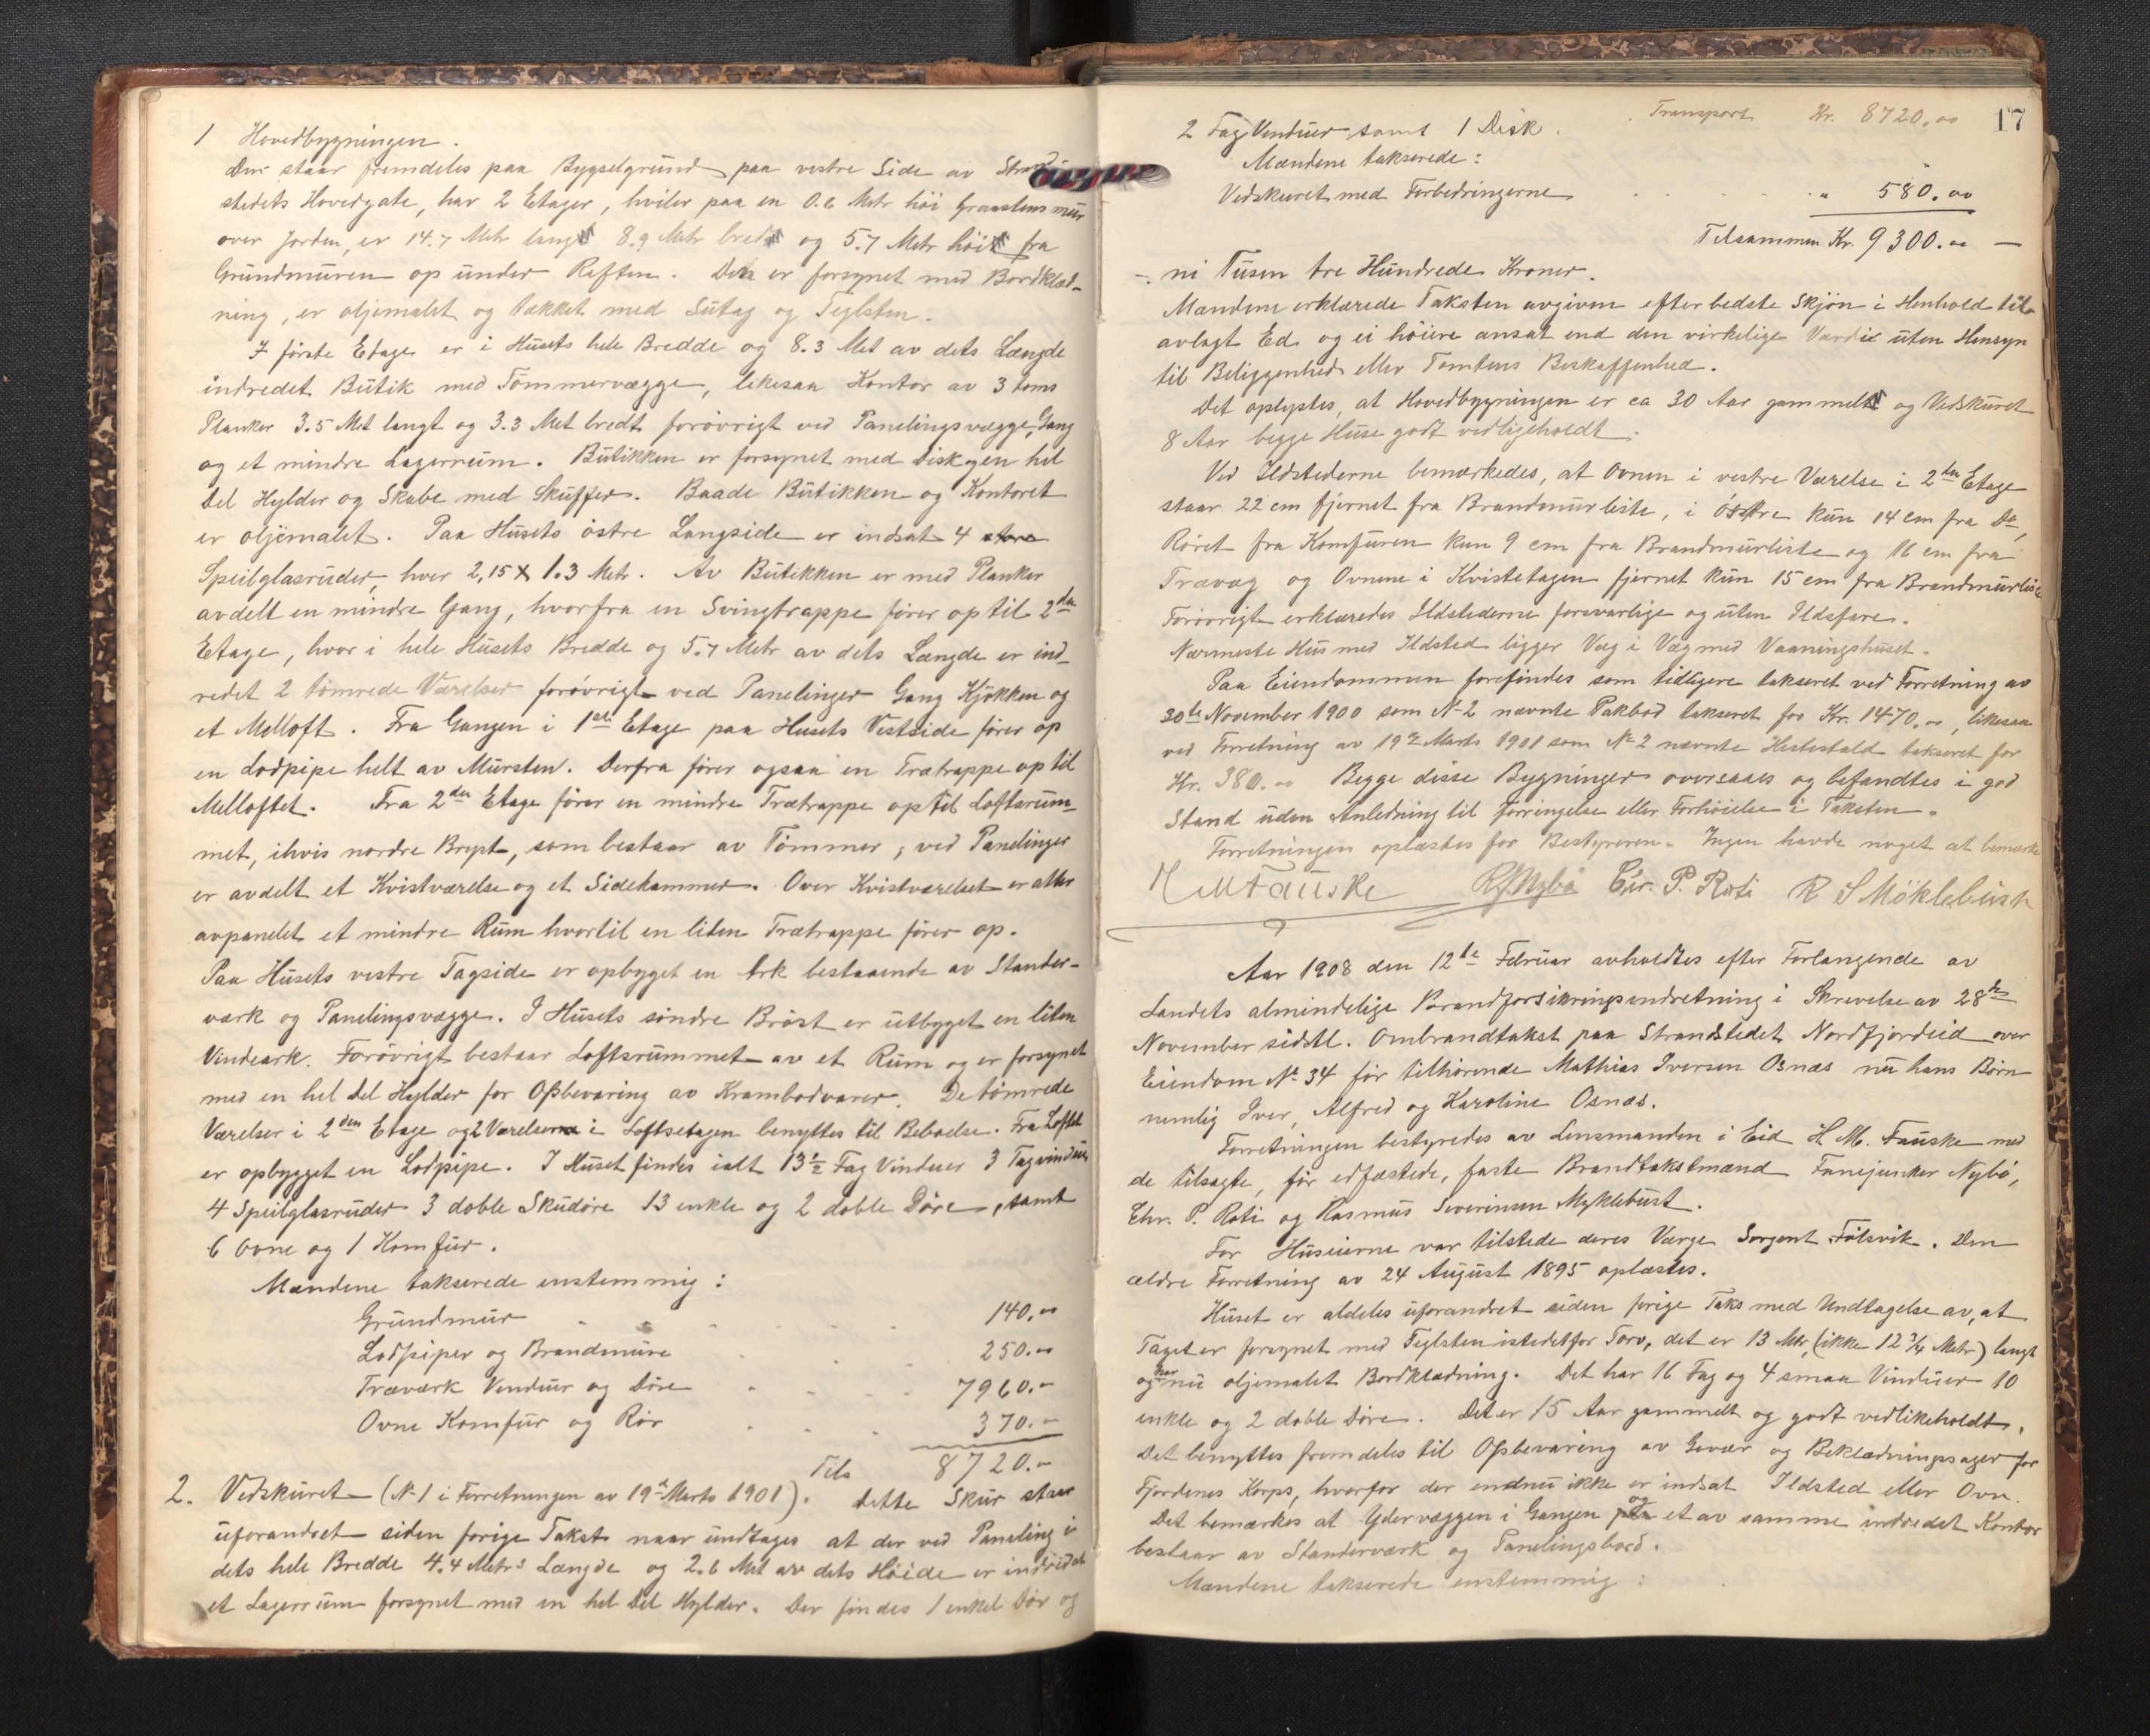 1 Hovedbygningen.
Den staar fremdeles paa Bygselgrund paa vestre Side av Strand
stedets Hovedgate, har 2 Etager, hviler paa en 0.6 Metr höi Graastensmur
over Jorden, er 14.7 Metr lang 8.9 Metr bred og 5.7 Metr höi fra
Grundmuren op under Raften. Den er forsynet med Bordklæd-
ning, er oljemalet og takket med Sutag og Teglsten.
I förste Etage er i Husets hele Bredde og 8.3 Met av dets Længde
indredet Butik med Tömmervægge, likesaa Kontor av 3 toms
Planker 3.5 Met langt og 3.3 Met bredt forövrigt ved Panelingsvægge, Gang
og et mindre Lagerrum. Butikken er forsynet med Disk og en hel
Del Hylder og Skabe med Skuffer. Baade Butikken og Kontoret
er oljemalet. Paa Husets östre Langside er indsat 4 store
Speilglasruder, hver 2,15 x 1.3 Metr. Av Butikken er med Planker
avdelt en mindre Gang, hvorfra en Svingtrappe förer op til 2den
Etage, hvor i hele Husets Bredde og 5.7 Metr av dets Længde er ind-
redet 2 tömrede Værelser forövrigt ved Panelinger Gang Kjökken og
et Melloft. Fra Gangen i 1ste Etage paa Husets Vestside förer op
en Lodpipe helt av Mursten. Derfra förer ogsaa en Trætrappe op til
Melloftet. Fra 2den Etage förer en mindre Trætrappe op til Loftsrum-
met, i hvis nordre Bryst, som bestaar av Tömmer, ved Panelinger
er avdelt et Kvistværelse og et Sidekammer. Over Kvistværelset er atter
avpanelet et mindre Rum hvortil en liten Trætrappe förer op.
Paa Husets vestre Tagside er opbygget en Ark bestaaende av Stander-
værk og Panelingsvægge. I Husets söndre Bröst er utbygget en liten
Vindeark. Forövrigt bestaar Loftsrummet av et Rum og er forsynet
med en hel Del Hylder for Opbevaring av Krambodvarer. De tömrede
Værelser i 2den Etage og 2 Værelser i Loftsetagen benyttes til Beboelse. Fra Loftet
er opbygget en Lodpipe. I Huset findes ialt 13½ Fag Vinduer 3 Tagvinduer
4 Speilglasruder 3 doble Skudöre 13 enkle og 2 doble Döre, samt
6 Ovne og 1 Komfur.
Mændene takserede enstemmig:
Grundmur 140.00
Lodpiper og Brandmure 250.00
Træværk Vinduer og Döre 7960.-
Ovne Komfur og Rör 370.-
Tils 8720.-
2. Vedskuret (N 1 i Forretningen av 19de Marts 1901). Dette Skur staar
uforandret siden forige Takst naar undtages at der ved Paneling i
dets hele Bredde 4.4 Metrs Længde og 2.6 Met av dets Höide er indredet
et Lagerrum forsynet med en hel Del Hylder. Der findes 1 enkel Dör og
17
Transport Kr. 8720.00
2 Fag Vinduer samt 1 Disk.
Mændene takserede:
Vedskuret med Forbedringerne " 580.00
Tilsammen Kr. 9300.00 —
- ni Tusen tre Hundrede Kroner.
Mændene erklærede Taksten avgiven efter bedste Skjön i Henhold til
avlagt Ed og ei höiere ansat end den virkelige Værdie uten Hensyn
til Beliggenhed eller Tomtens Beskaffenhed.
Det oplystes, at Hovedbygningen er ca 30 Aar gammel og Vedskuret
8 Aar begge Huse godt vedligeholdt.
Ved Ildstederne bemærkedes, at Ovnen i vestre Værelse i 2den Etage
staar 22 cm fjernet fra Brandmurliste, i östre kun 14 cm fra Do,
Röret fra Komfuren kun 9 cm fra Brandmurliste og 16 cm fra
Trævæg og Ovnene i Kvistetagen fjernet kun 15 cm fra Brandmurliste
Forövrigt erklæredes Ildstederne forsvarlige og uten Ildsfare.
Nærmeste Hus med Ildsted ligger Væg i Væg med Vaaningshuset.
Paa Eiendommen forefindes som tidligere takseret ved Forretning av
30te November 1900 som N 2 nævnte Pakbod takseret for Kr. 1470.00, likesaa
ved Forretning av 19de Marts 1901 som N 2 nævnte Hestestald takseret for
Kr. 380.00 Begge disse Bygninger oversaaes og befandtes i god
Stand uden Anledning til Forringelse eller Forhöielse i Taksten.
Forretningen oplæstes for Bestyreren. Ingen havde noget at bemærke
HMFauske RJNybö Chr. P. Roti R S Möklebust
Aar 1908 den 12te Februar avholdtes efter Forlangende av
Landets almindelige Brandforsikringsindretning i Skrevelse av 28de
November sidstl. Ombrandtakst paa Strandstedet Nordfjordeid over
Eiendom No 34 för tilhörende Mathias Iversen Osnæs nu hans Börn
nemlig Iver, Alfred og Karoline Osnæs.
Forretningen bestyredes av Lensmanden i Eid H. M. Fauske med
de tilsagte, för edfæstede, faste Brandtakstmænd Fanejunker Nybö,
Chr. P. Roti og Rasmus Severinsen Myklebust.
For Huseierne var tilstede deres Værge Sergent Fölsvik. Den
ældre Forretning av 24 August 1895 oplæstes.
Huset er aldeles uforandret siden forige Takst med Undtagelse av, at
Taget er forsynet med Teglsten istedetfor Torv, det er 13 Metr (ikke 12¾ Metr) langt
og har nu oljemalet Bordklædning. Det har 16 Fag og 4 smaa Vinduer 10
enkle og 2 doble Döre. Det er 15 Aar gammelt og godt vedlikeholdt.
Det benyttes fremdeles til Opbevaring av Gevær og Beklædningssager for
Fjordenes Korps, hvorfor der endnu ikke er indsat Ildsted eller Ovn.
Det bemærkes at Ydervæggen i Gangen og et av samme indredet Kontor
bestaar av Standerværk og Panelingsbord.
Mændene takserede enstemmig: